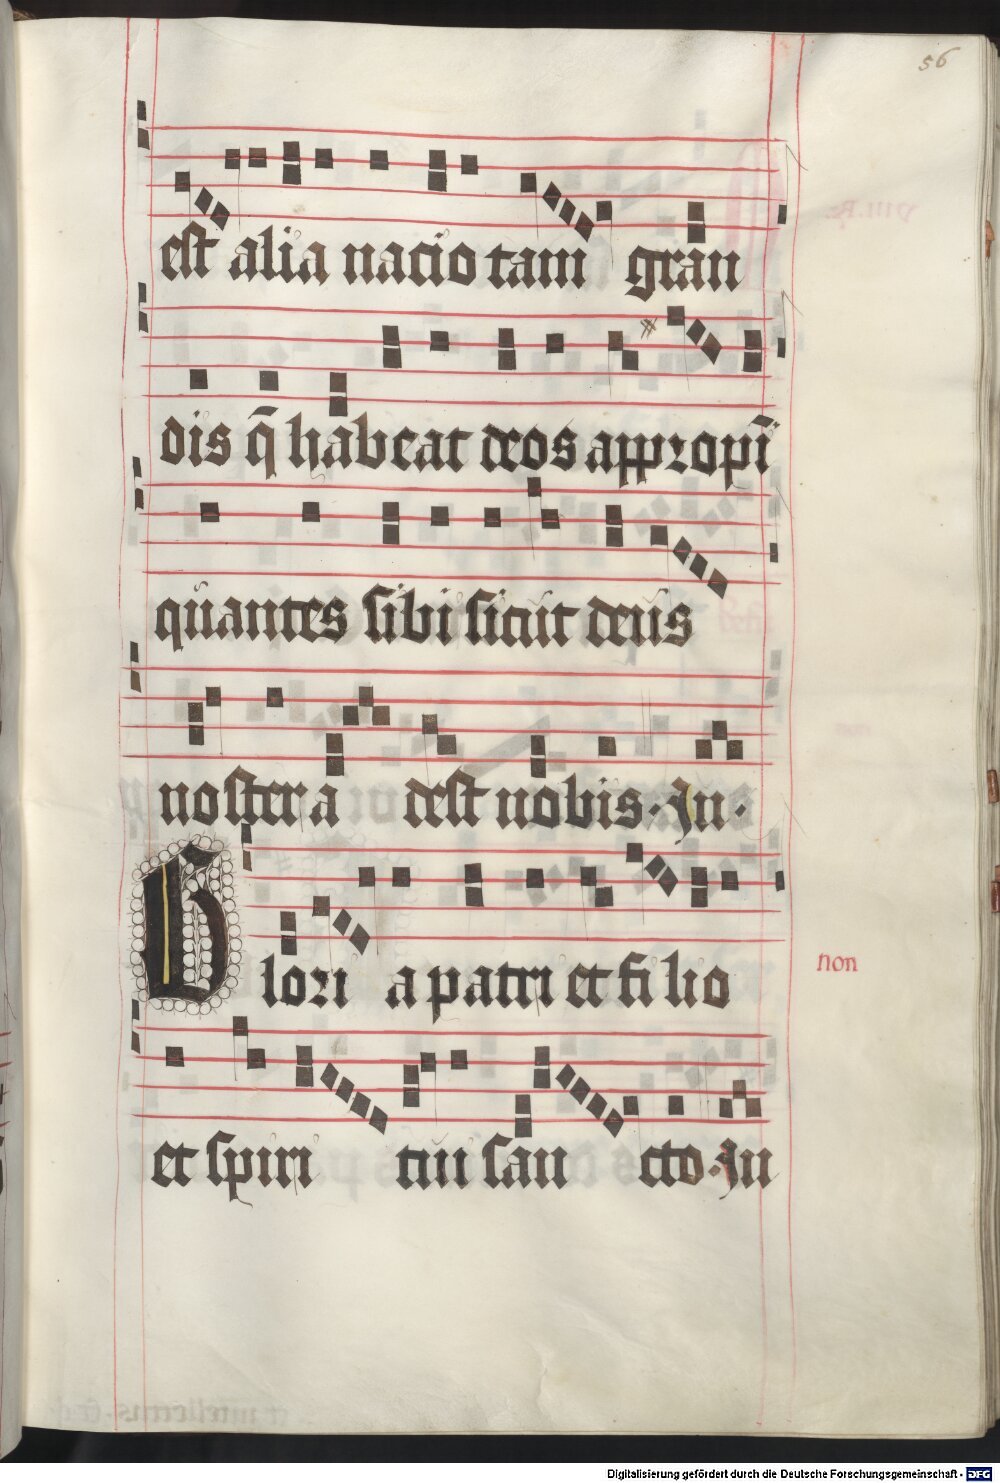 56
est alia nacio tam gran
dis q̄ habeat deos appropī
quantes sibi sicut deus
noster a dest nobis. In.
Glori a patri et fi lio
non
et spiri tui san cto. In
Digitalisierung gefördert durch die Deutsche Forschungsgemeinschaft - DFG